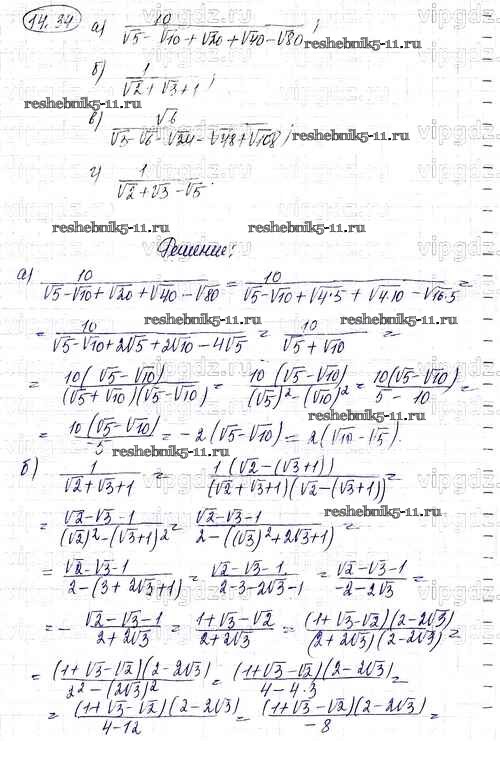 14.34 а) 10/(√5-√10+√20+√40-√80);
б) 1/(√2+√3+1);
в) √6/(√3-√6-√24-√48+√108);
г) 1/(√2+√3-√5).
Решение:
а) 10/(√5-√10+√20+√40-√80) = 10/(√5-√10+√4·5+√4·10-√16·5) =
= 10/(√5-√10+2√5+2√10-4√5) = 10/(√5+√10) =
= 10(√5-√10)/((√5+√10)(√5-√10)) = 10(√5-√10)/((√5)²-(√10)²) = 10(√5-√10)/(5-10) =
= 10(√5-√10)/-5 = -2(√5-√10) = 2(√10-√5).
б) 1/(√2+√3+1) = 1(√2-(√3+1))/((√2+√3+1)(√2-(√3+1))) =
= (√2-√3-1)/((√2)²-(√3+1)²) = (√2-√3-1)/(2-((√3)²+2√3+1)) =
= (√2-√3-1)/(2-(3+2√3+1)) = (√2-√3-1)/(2-3-2√3-1) = (√2-√3-1)/(-2-2√3) =
= -(√2-√3-1)/(2+2√3) = (1+√3-√2)/(2+2√3) = (1+√3-√2)(2-2√3)/((2+2√3)(2-2√3)) =
= (1+√3-√2)(2-2√3)/(2²-(2√3)²) = (1+√3-√2)(2-2√3)/(4-4·3) =
= (1+√3-√2)(2-2√3)/(4-12) = (1+√3-√2)(2-2√3)/-8 =
vipgdz
reshebnik5-11.ru